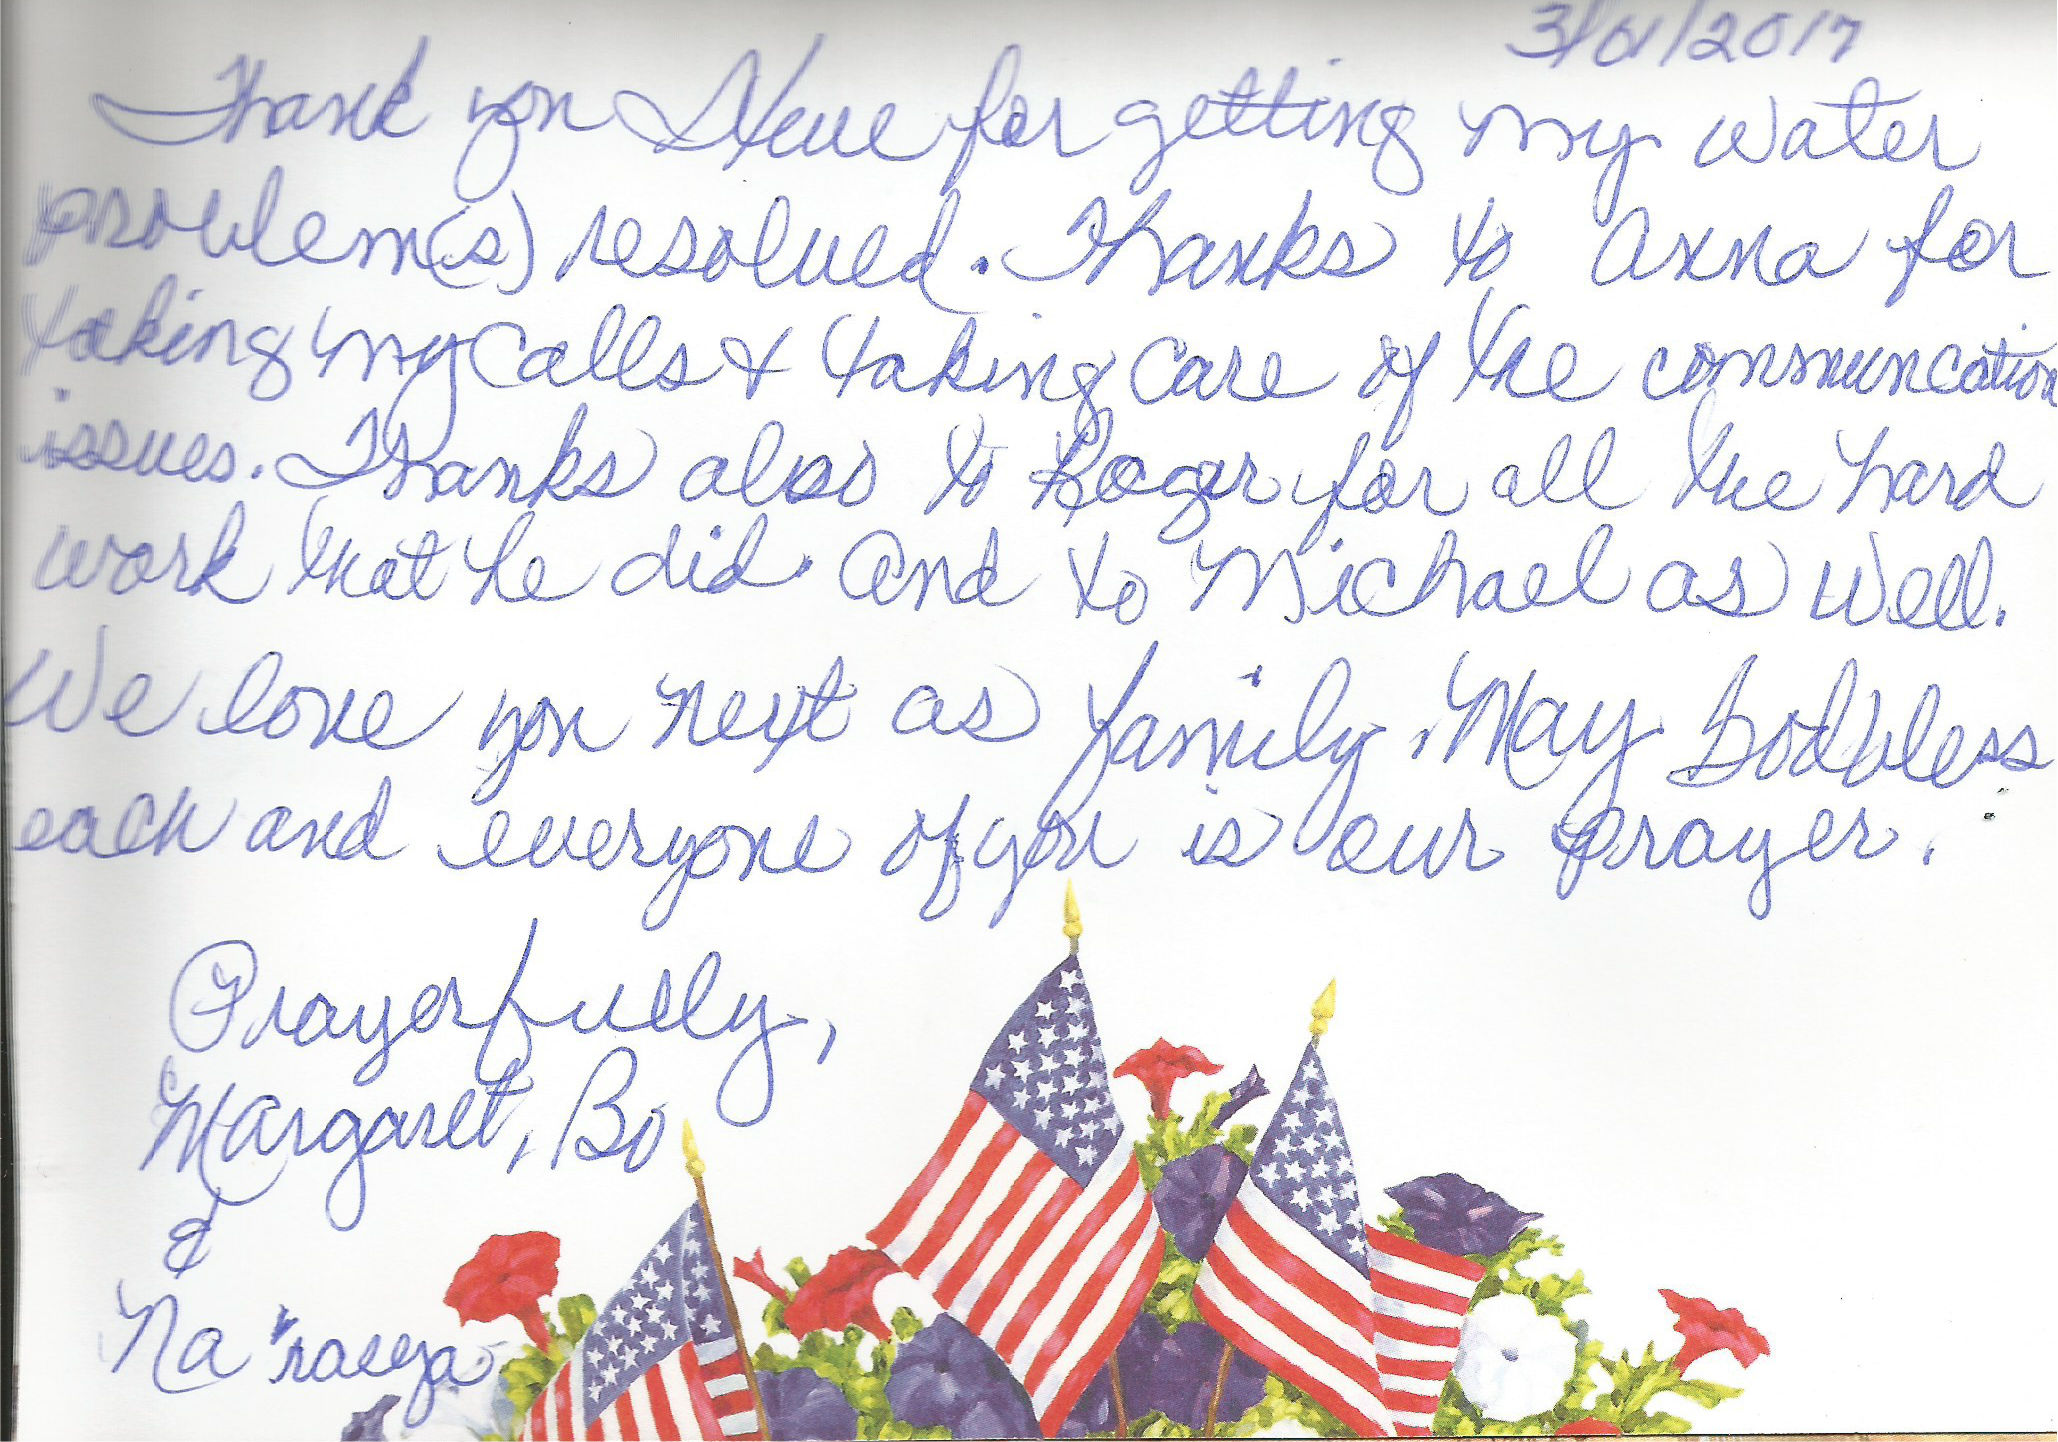 3/01/2017
Thank you Steve for getting my water
problem(s) resolved. Thanks to Anna for
taking my calls & taking care of the communcation
issues. Thanks also to Roger for all the hard
work that he did. And to Michael as well.
We love you next as family. May God bless
each and everyone of you is our prayer.
Prayerfully,
Margaret, Bo
&